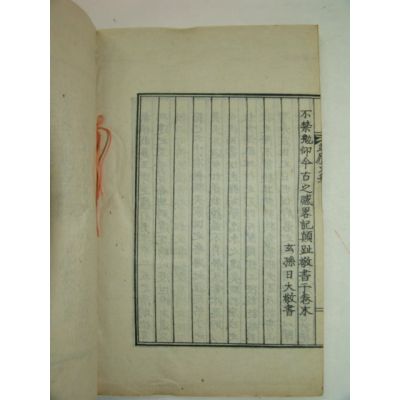 不禁俛仰今古之感畧記顛趾敬書于卷末
玄孫日大敬書